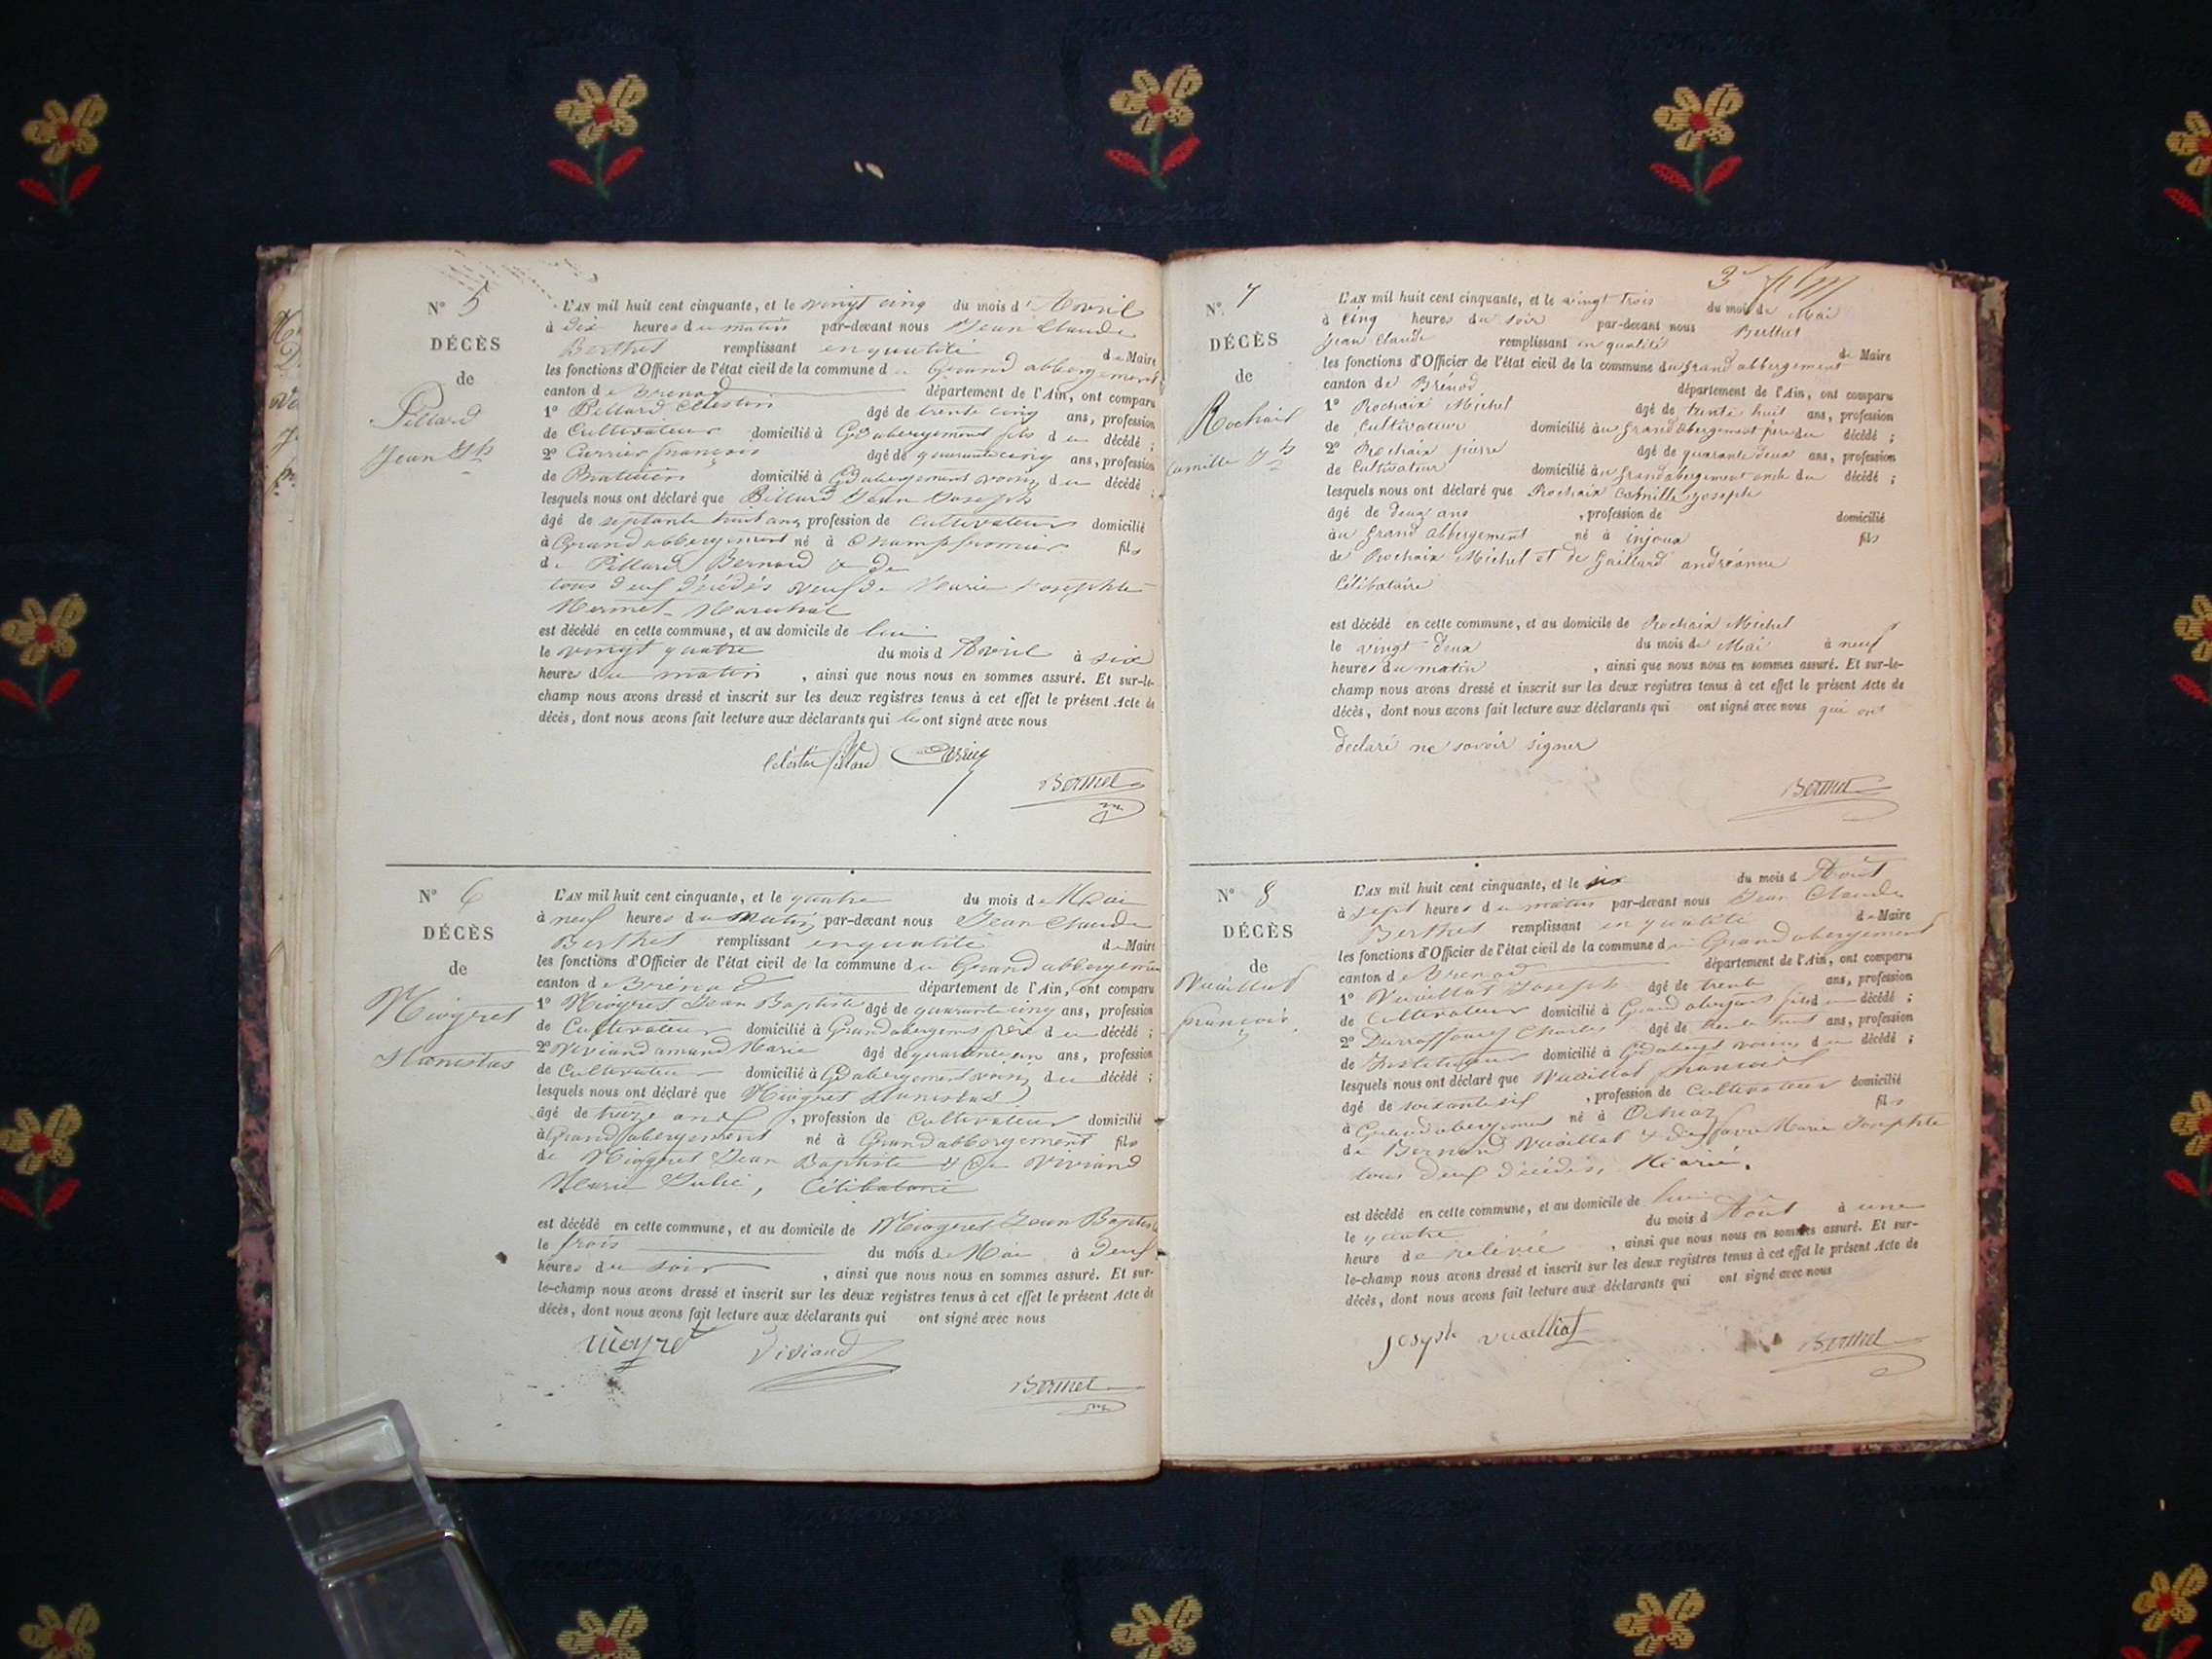 N° 5
DÉCÈS
de
Pillard
Jean Jh
L'AN mil huit cent cinquante, et le vingt cinq du mois d'Avril
à dix heures du matin par-devant nous Jean Claude
Berthet remplissant en qualité de Maire
les fonctions d'Officier de l'état civil de la commune du Grand abbergement
canton de Brenod département de l'Ain, ont comparu
1° Pillard Célestin âgé de trente cinq ans, profession
de Cultivateur domicilié à Gd abergement fils du décédé ;
2° Currier françois âgé de quarante cinq ans, profession
de domicilié à Gd abergement voisin du décédé ;
lesquels nous ont déclaré que Pillard Jean Joseph
âgé de septante huit ans profession de Cultivateur domicilié
à Grand abbergement né à Champfromier fils
de Pillard Bernard & de
tous deux décédés veuf de Marie Josephte
Mermet-Marechal
est décédé en cette commune, et au domicile de lui
le vingt quatre du mois d'Avril à six
heures du matin , ainsi que nous nous en sommes assuré. Et sur-le-
champ nous avons dressé et inscrit sur les deux registres tenus à cet effet le présent Acte de
décès, dont nous avons fait lecture aux déclarants qui ont signé avec nous
Célestin Pillard
Berthet
N° 6
DÉCÈS
de
Niogret
Stanistas
L'AN mil huit cent cinquante, et le quatre du mois de Mai
à neuf heures du matin, par-devant nous Jean Claude
Berthet remplissant en qualité de Maire
les fonctions d'Officier de l'état civil de la commune du Grand abbergement
canton de Brenod département de l'Ain, ont comparu
1° Niogret Jean Baptiste âgé de quarante cinq ans, profession
de Cultivateur domicilié à Grand abergement père du décédé ;
2° Viviand amand Marie âgé de quarante un ans, profession
de Cultivateur domicilié à Gd abergement voisin du décédé ;
lesquels nous ont déclaré que Niogret Stanistas
âgé de treize ans , profession de Cultivateur domicilié
à Grand abergement né à Grand abbergement fils
de Niogret Jean Baptiste & de Viviand
Marie Julie, Célibataire
est décédé en cette commune, et au domicile de Niogret Jean Baptiste
le trois du mois de Mai à deux
heures du soir , ainsi que nous nous en sommes assuré. Et sur-
le-champ nous avons dressé et inscrit sur les deux registres tenus à cet effet le présent Acte de
décès, dont nous avons fait lecture aux déclarants qui ont signé avec nous
niogret Viviand
Berthet
3e
N° 7
DÉCÈS
de
Rochaix
Camille Jh
L'AN mil huit cent cinquante, et le vingt trois du mois de Mai
à Cinq heures du soir par-devant nous Berthet
Jean Claude remplissant en qualité de Maire
les fonctions d'Officier de l'état civil de la commune du grand abbergement
canton de Brénod département de l'Ain, ont comparu
1° Rochaix Michel âgé de trente huit ans, profession
de Cultivateur domicilié au grand abergement père du décédé ;
2° Rochaix pierre âgé de quarante deux ans, profession
de Cultivateur domicilié au grand abergement oncle du décédé ;
lesquels nous ont déclaré que Rochaix Camille joseph
âgé de deux ans , profession de domicilié
au grand abbergement né à injoux fils
de Rochaix Michel et de Gaillard andréanne
Célibataire
est décédé en cette commune, et au domicile de Rochaix Michel
le vingt deux du mois de Mai à neuf
heures du matin , ainsi que nous nous en sommes assuré. Et sur-le-
champ nous avons dressé et inscrit sur les deux registres tenus à cet effet le présent Acte de
décès, dont nous avons fait lecture aux déclarants qui ont signé avec nous qui ont
declaré ne savoir signer
Berthet
N° 8
DÉCÈS
de
Vuaillat
françois
L'AN mil huit cent cinquante, et le six du mois d'Août
à sept heures du matin par-devant nous Jean Claude
Berthet remplissant en qualité de Maire
les fonctions d'Officier de l'état civil de la commune du Grand abergement
canton de Brenod département de l'Ain, ont comparu
1° Vuaillat Joseph âgé de trente ans, profession
de Cultivateur domicilié à Grand abergement fils du décédé ;
2° Charles âgé de trente huit ans, profession
de Instituteur domicilié à Gd abergt voisin du décédé ;
lesquels nous ont déclaré que Vuaillat françois
âgé de soixante six , profession de Cultivateur domicilié
à Grand abergement né à Ochiaz fils
de Bernard Vuaillat & de Marie Josephte
tous deux décédés, Marié.
est décédé en cette commune, et au domicile de lui
le quatre du mois d'Août à une
heure de relevée , ainsi que nous nous en sommes assuré. Et sur-
le-champ nous avons dressé et inscrit sur les deux registres tenus à cet effet le présent Acte de
décès, dont nous avons fait lecture aux déclarants qui ont signé avec nous
Joseph vuaillat
Berthet